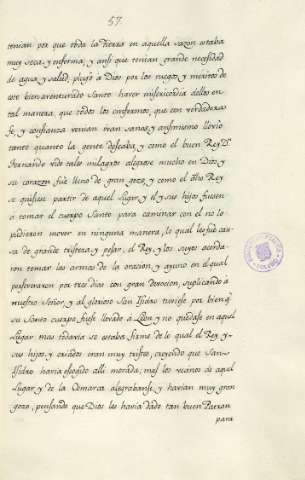 57.
tenian por que toda la Tierra en aquella sazon estaba
muy seca, y enferma, y ansi que tenian grande necesidad
de agua, y salud, plugo a Dios por los ruegos, y meritos de
este bienaventurado Santo hacer misericordia dellos en
tal manera, que todos los enfermos, que con verdadera
fe, y confianza venian eran sanos, y asimismo llovio
tanto quanto la gente deseaba, y como el buen Rey Dn.
Fernando vido tales milagros alegrose mucho en Dios, y
su corazon fue lleno de gran gozo, y como el dho Rey
se quisiese partir de aquel Lugar, y el y sus hijos fuesen
a tomar el cuerpo Santo para caminar con el no le
pudieron mover en ninguna manera, lo qual les fue cau-
sa de grande tristeza, y pesar, el Rey, y los suyos acorda-
ron tomar las armas de la oracion, y ayuno en el qual
perseveraron por tres dias con gran devocion, suplicando a
nuestro Señor, y al glorioso San Isidro tuviese por bien q.e
su Santo cuerpo fuese llevado a Leon y no quedase en aquel
Lugar mas todavia se estaba firme de lo qual el Rey, y
sus hijos, y criados eran muy tristes, creyendo que San
Isidro havia escogido alli morada, mas los vecinos de aquel
Lugar, y de la Comarca alegrabanse, y havian muy gran
gozo, pensando que Dios les havia dado tan buen Patron
para